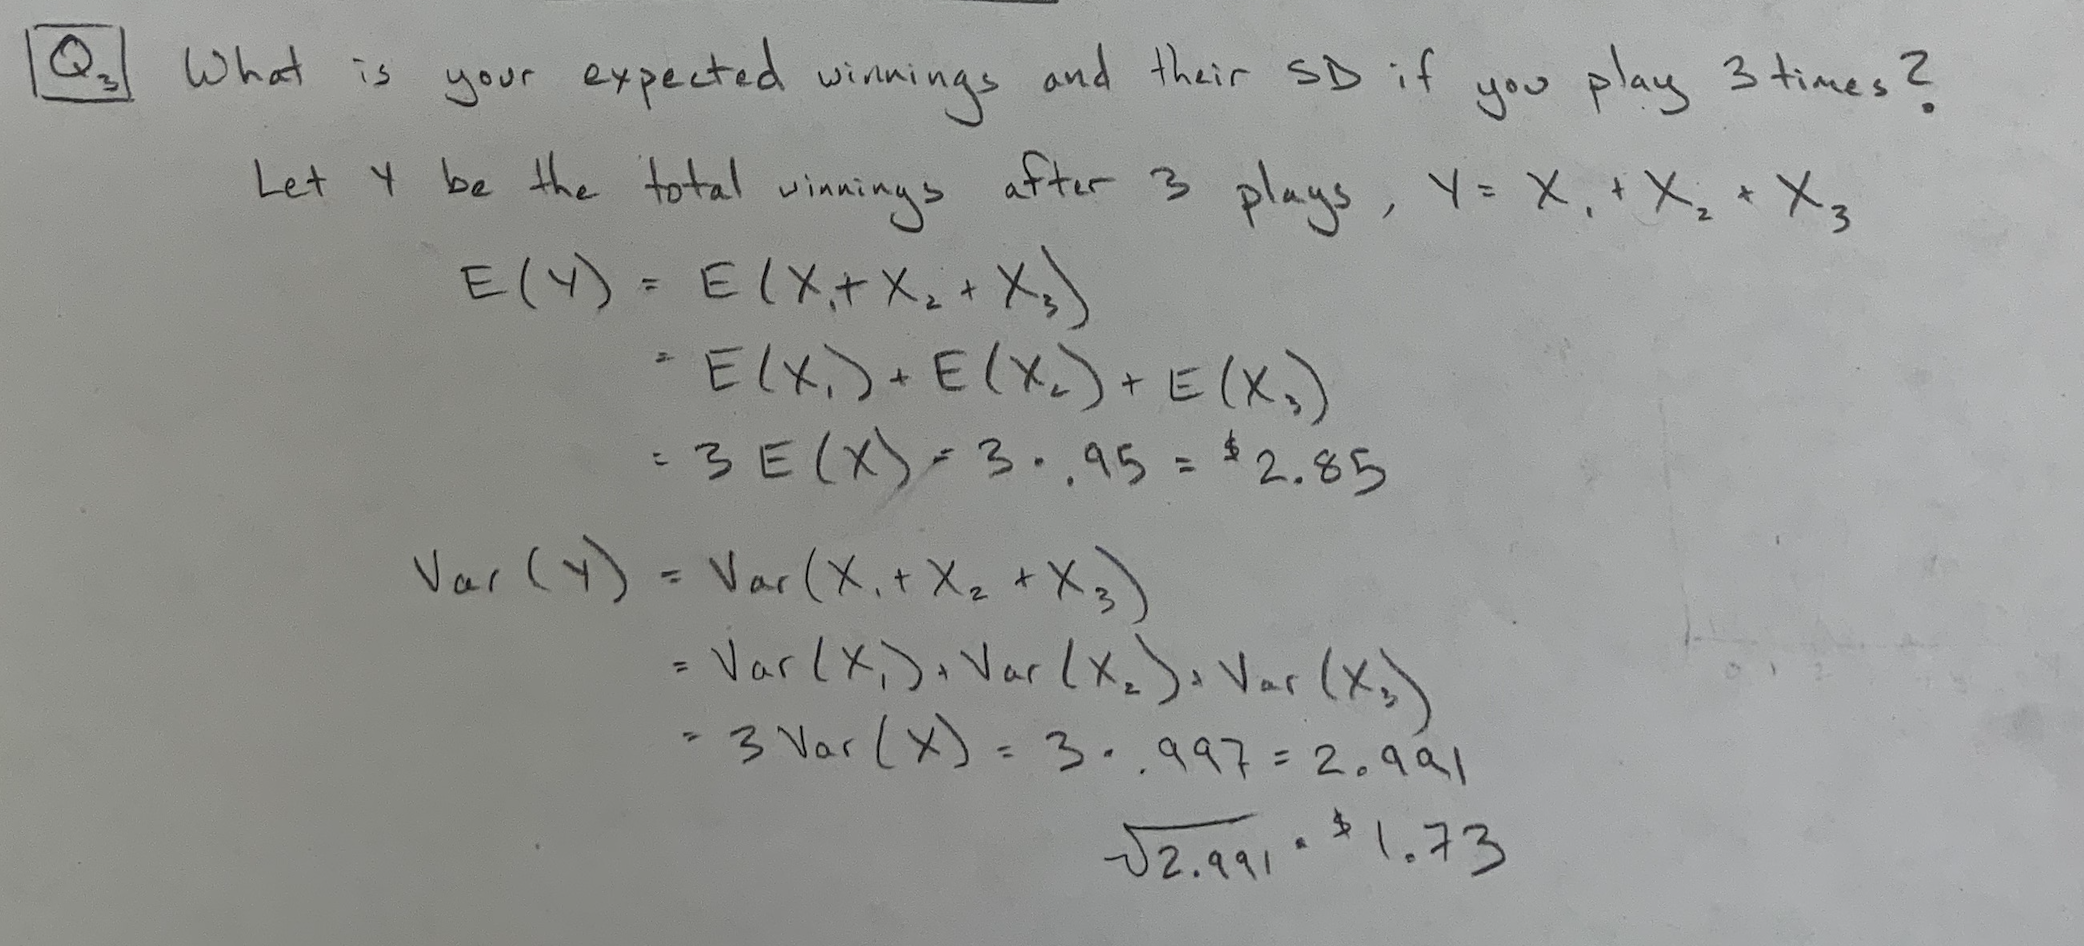 Q₃ What is your expected winnings and their SD if you play 3 times?
Let Y be the total winnings after 3 plays, Y = X₁ + X₂ + X₃
E(Y) = E(X₁ + X₂ + X₃)
= E(X₁) + E(X₂) + E(X₃)
= 3 E(X) = 3 · .95 = $2.85
Var(Y) = Var(X₁ + X₂ + X₃)
= Var(X₁) + Var(X₂) + Var(X₃)
= 3 Var(X) = 3 · .997 = 2.991
√2.991 = $1.73